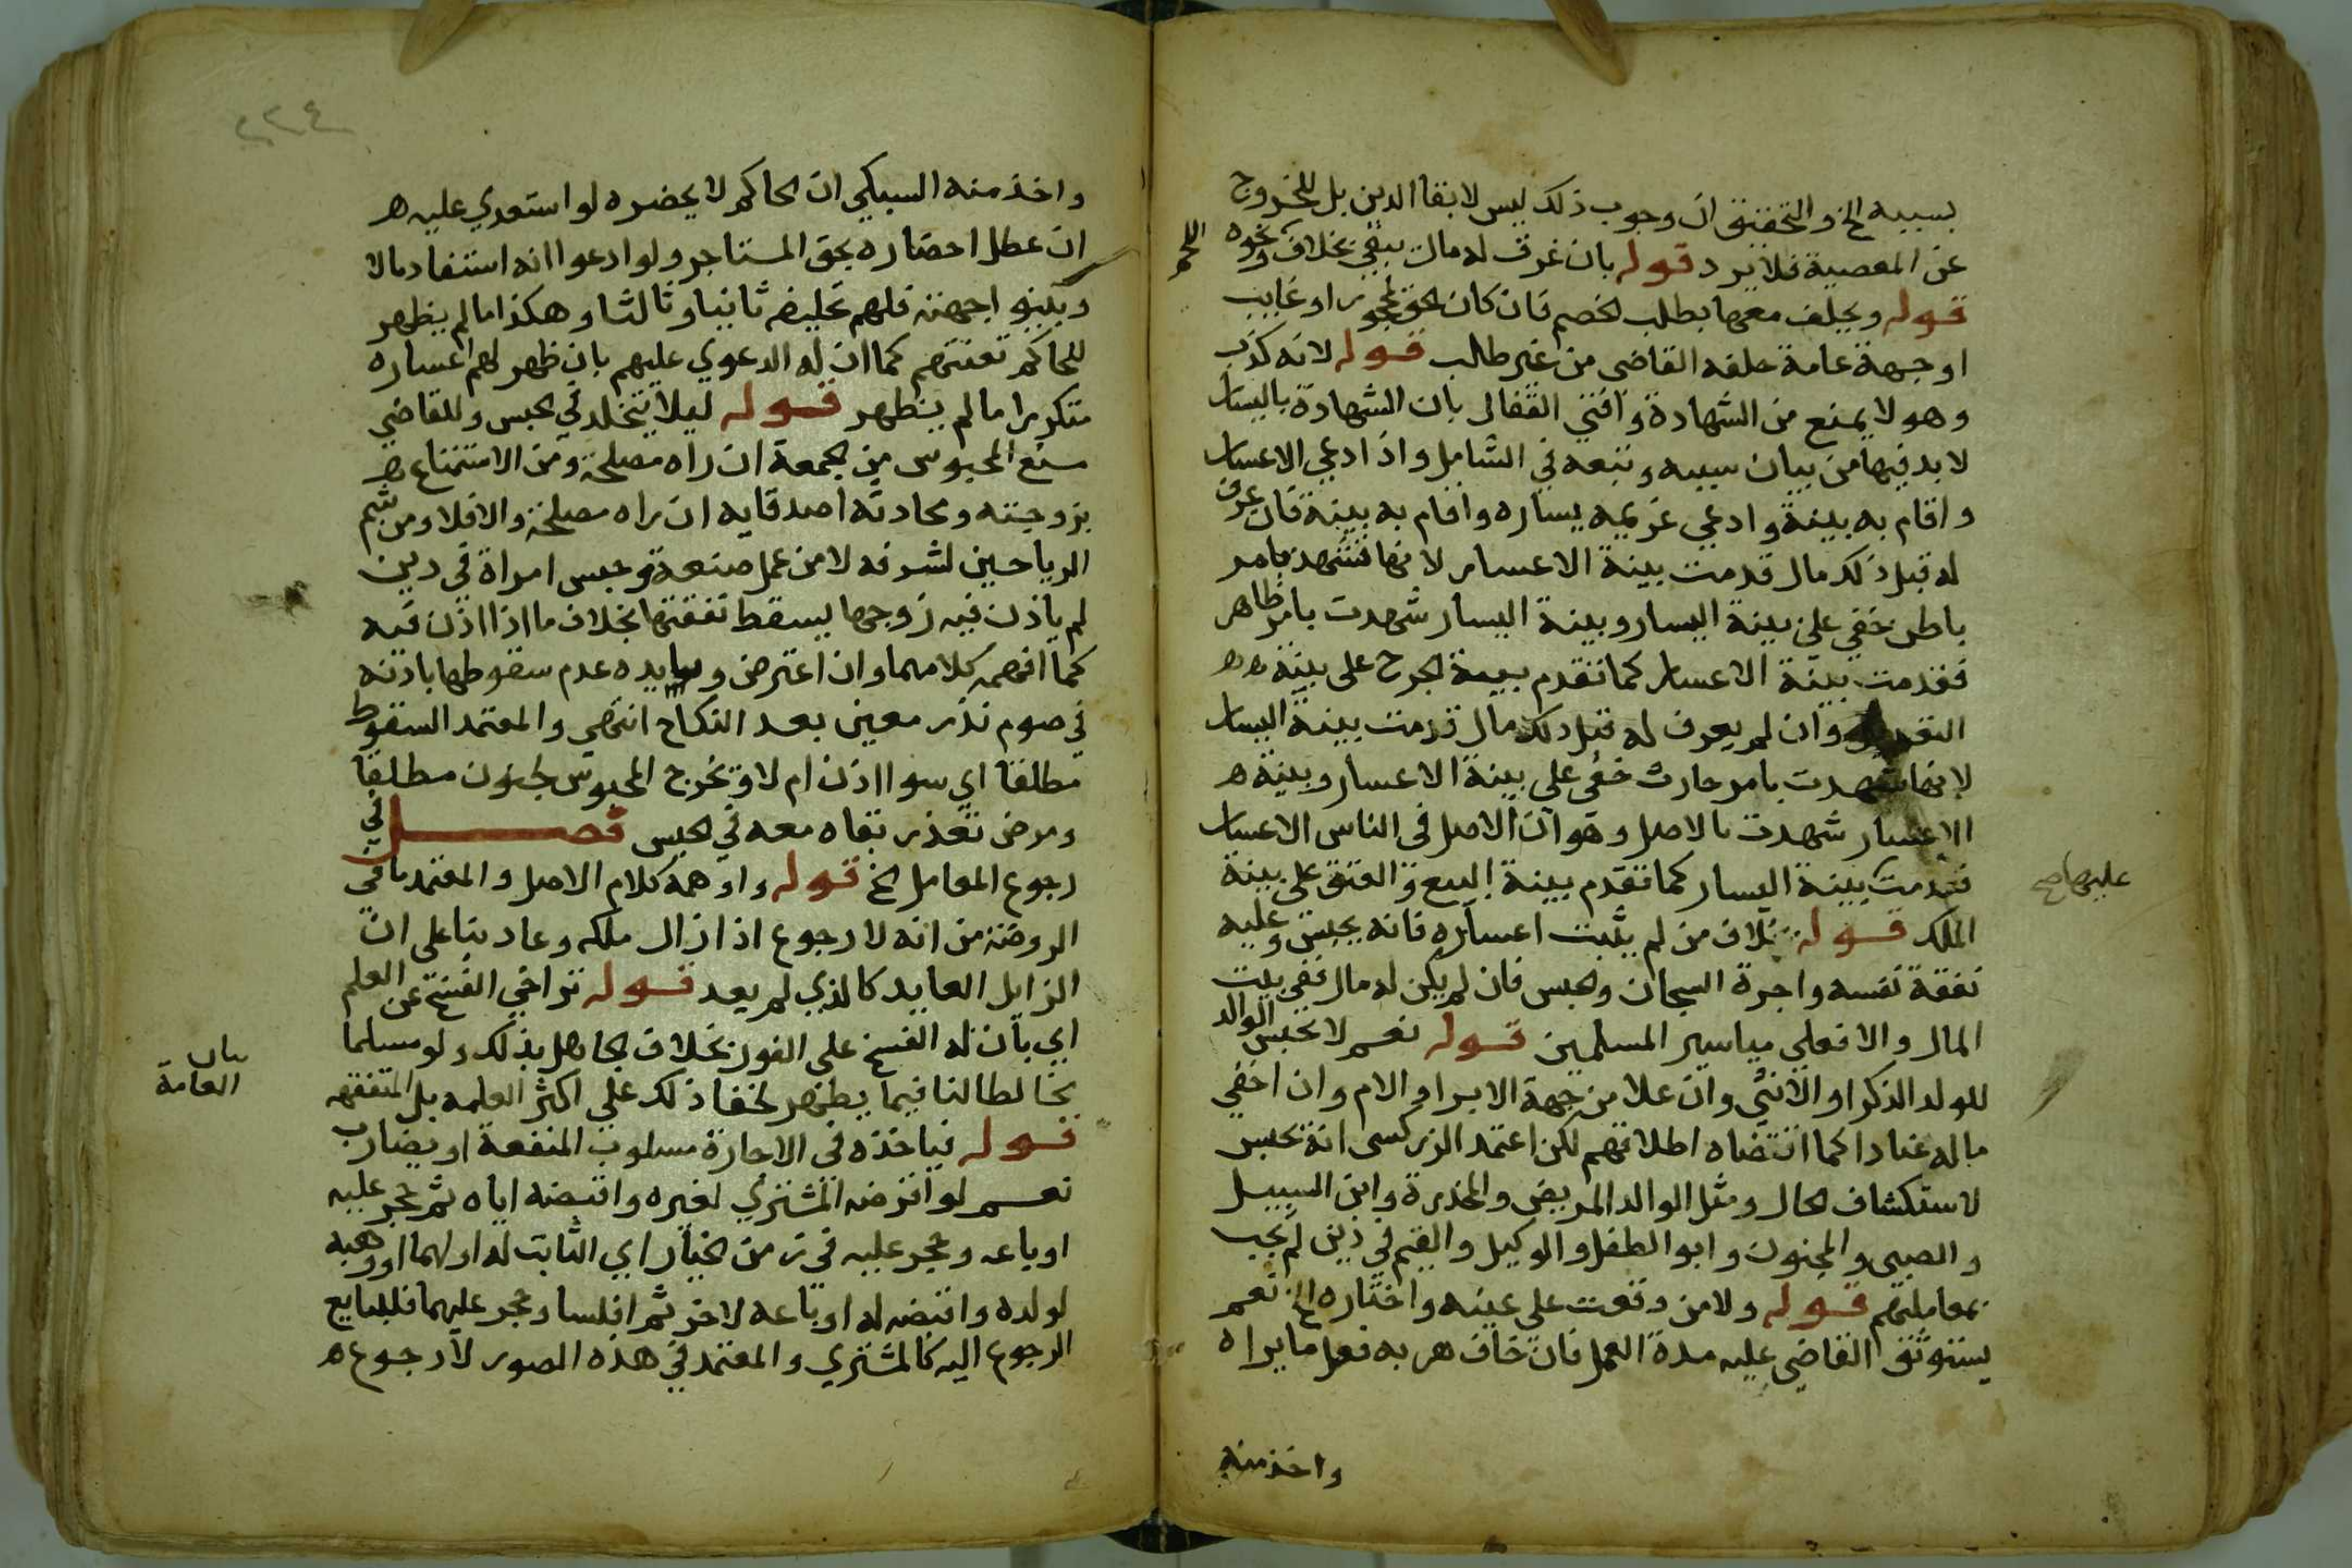 بسببه الخ والتحقيق ان وجوب ذلك ليس لابقا الدين بل للخروج
عن المعصية فلا يرد قوله بان عرف له مال يبقي بخلاف نحو
اللحم
قوله ويحلف معها بطلب الخصم فان كان الحق لمحجور او غايب
او جهة عامة حلفه القاضي من غير طالب قوله لانه كذب
وهو لا يمنع من الشهادة وافتي القفال بان الشهادة باليسار
لا بد فيها من بيان سببه وتبعه في الشامل واذا ادعي الاعسار
واقام به بينة وادعي غريمه يساره واقام به بينة فان عرف
له قبل ذلك مال قدمت بينة الاعسار لانها تشهد بامر
باطن خفي علي بينة اليسار وبينة اليسار شهدت بامر ظاهر
فقدمت بينة الاعسار كما تقدم بينة الجرح على بينة هه
التعديل وان لم يعرف له قبل ذلك مال قدمت بينة اليسار
لانها شهدت بامر حادث خفي على بينة الاعسار وبينة ه
الاعسار شهدت بالاصل وهو ان الاصل في الناس الاعسار
فقدمت بينة اليسار كما تقدم بينة البيع والعتق علي بينة
عليها صح
الملك قوله بخلاف من لم يثبت اعساره فانه يحبس وعليه
نفقة نفسه واجرة السجان والحبس فان لم يكن له مال ففي بيت
المال والا فعلي مياسير المسلمين قوله نعم لا يحبس الوالد
للولد الذكر او الانثي وان علا من جهة الاب او الام وان اخفي
ماله عنادا كما اقتضاه اطلاقهم لكن اعتمد الزركسى انه يحبس
لاستكشاف الحال ومثل الوالد المريض والمخدرة وابن السبيل
والصبى والمجنون وابو الطفل والوكيل والقيم في دين لم يجب
بمعاملتهم قوله ولا من وقعت على عينه واختاره الخ نعم
يستوثق القاضي عليه مدة العمل فان خاف هربه فعل ما يراه
واخذ منه
٢٢٤
واخذ منه السبكي ان الحاكم لا يحضره لو استعدي عليه ه
ان عطل احضاره بحق المستاجر ولو ادعوا انه استفاد مالا
وبينو اجهته فلهم تحليفه ثانيا وثالثا وهكذا ما لم يظهر
للحاكم تعنتهم كما ان له الدعوي عليهم بان ظهر لهم اعساره
متكررا ما لم يظهر قوله ليلا يتخلد في الحبس وللقاضي
منع المحبوس من الجمعة ان راه مصلحة ومن الاستمتاع ه
بزوجته ومحادثة اصدقايه ان راه مصلحة والا فلا ومن شم
الرياحين لترفه لا من عمل صنعة وحبس امراة في دين
لم ياذن فيه زوجها يسقط نفقتها بخلاف ما اذا اذن فيه
كما افهمه كلامهما وان اعترض ويوايده عدم سقوطها باذنه
في صوم نذر معين بعد النكاح انتهي والمعتمد السقوط
مطلقا اي سوا اذن ام لا ويخرج المحبوس لجنون مطلقا
ومرض تعذر بقاه معه في الحبس فصل في
رجوع المعامل الخ قوله واوهمه كلام الاصل والمعتمد ما في
الروضة من انه لا رجوع اذا زال ملكه وعاد بنا على ان
الزايل العايد كالذي لم يعد قوله تراخي الفسخ عن العلم
اي بان له الفسخ على الفور بخلاف الجاهل بذلك ولو مسلما
مخالطا لنا فيما يظهر لخفا ذلك علي اكثر العلمه بل المتفقهه
بيان
العامة
قوله فياخذه في الاجارة مسلوب المنفعة او يضارب
نعم لو اقرضه المشتري لغيره واقبضه اياه ثم حجر عليه
او باعه وحجر عليه في زمن الخيار اي الثابت له او لهما او وهبه
لولده واقبضه له او باعه لاخر ثم افلسا وحجر عليهما فللبايع
الرجوع اليه كالمشتري والمعتمد في هذه الصور لا رجوع ه